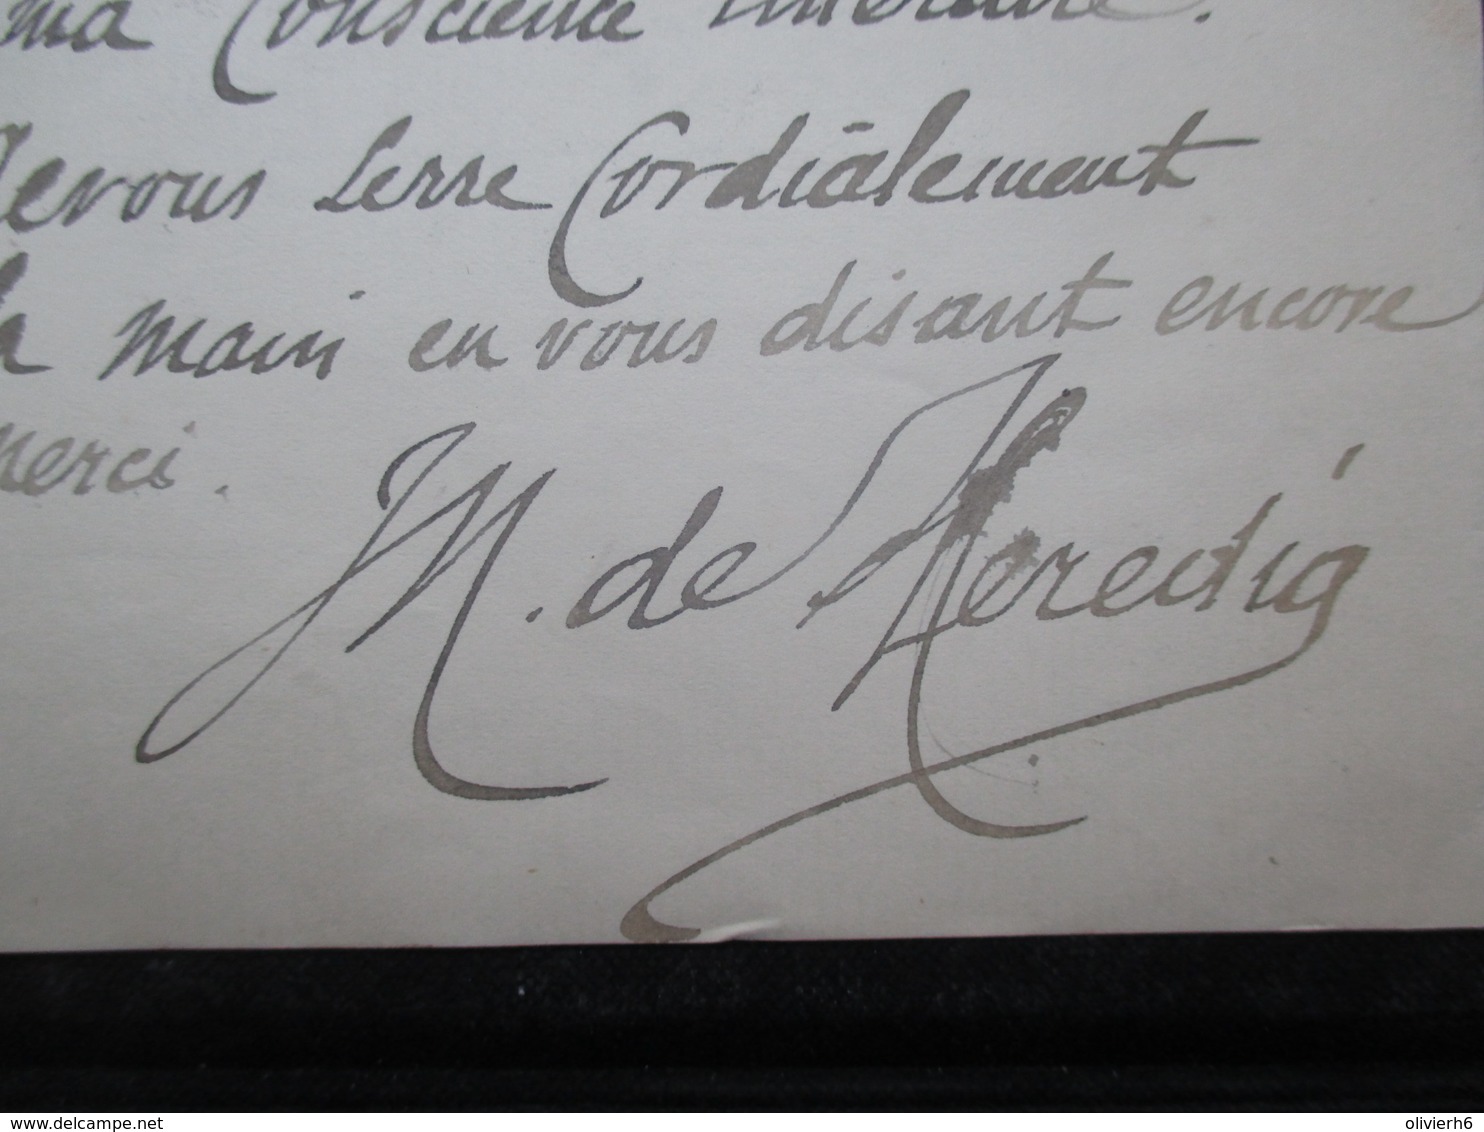 ma Conscience littéraire.
Je vous serre Cordialement
la main en vous disant encore
merci.
M. de Heredia
www.delcampe.net
olivierh6